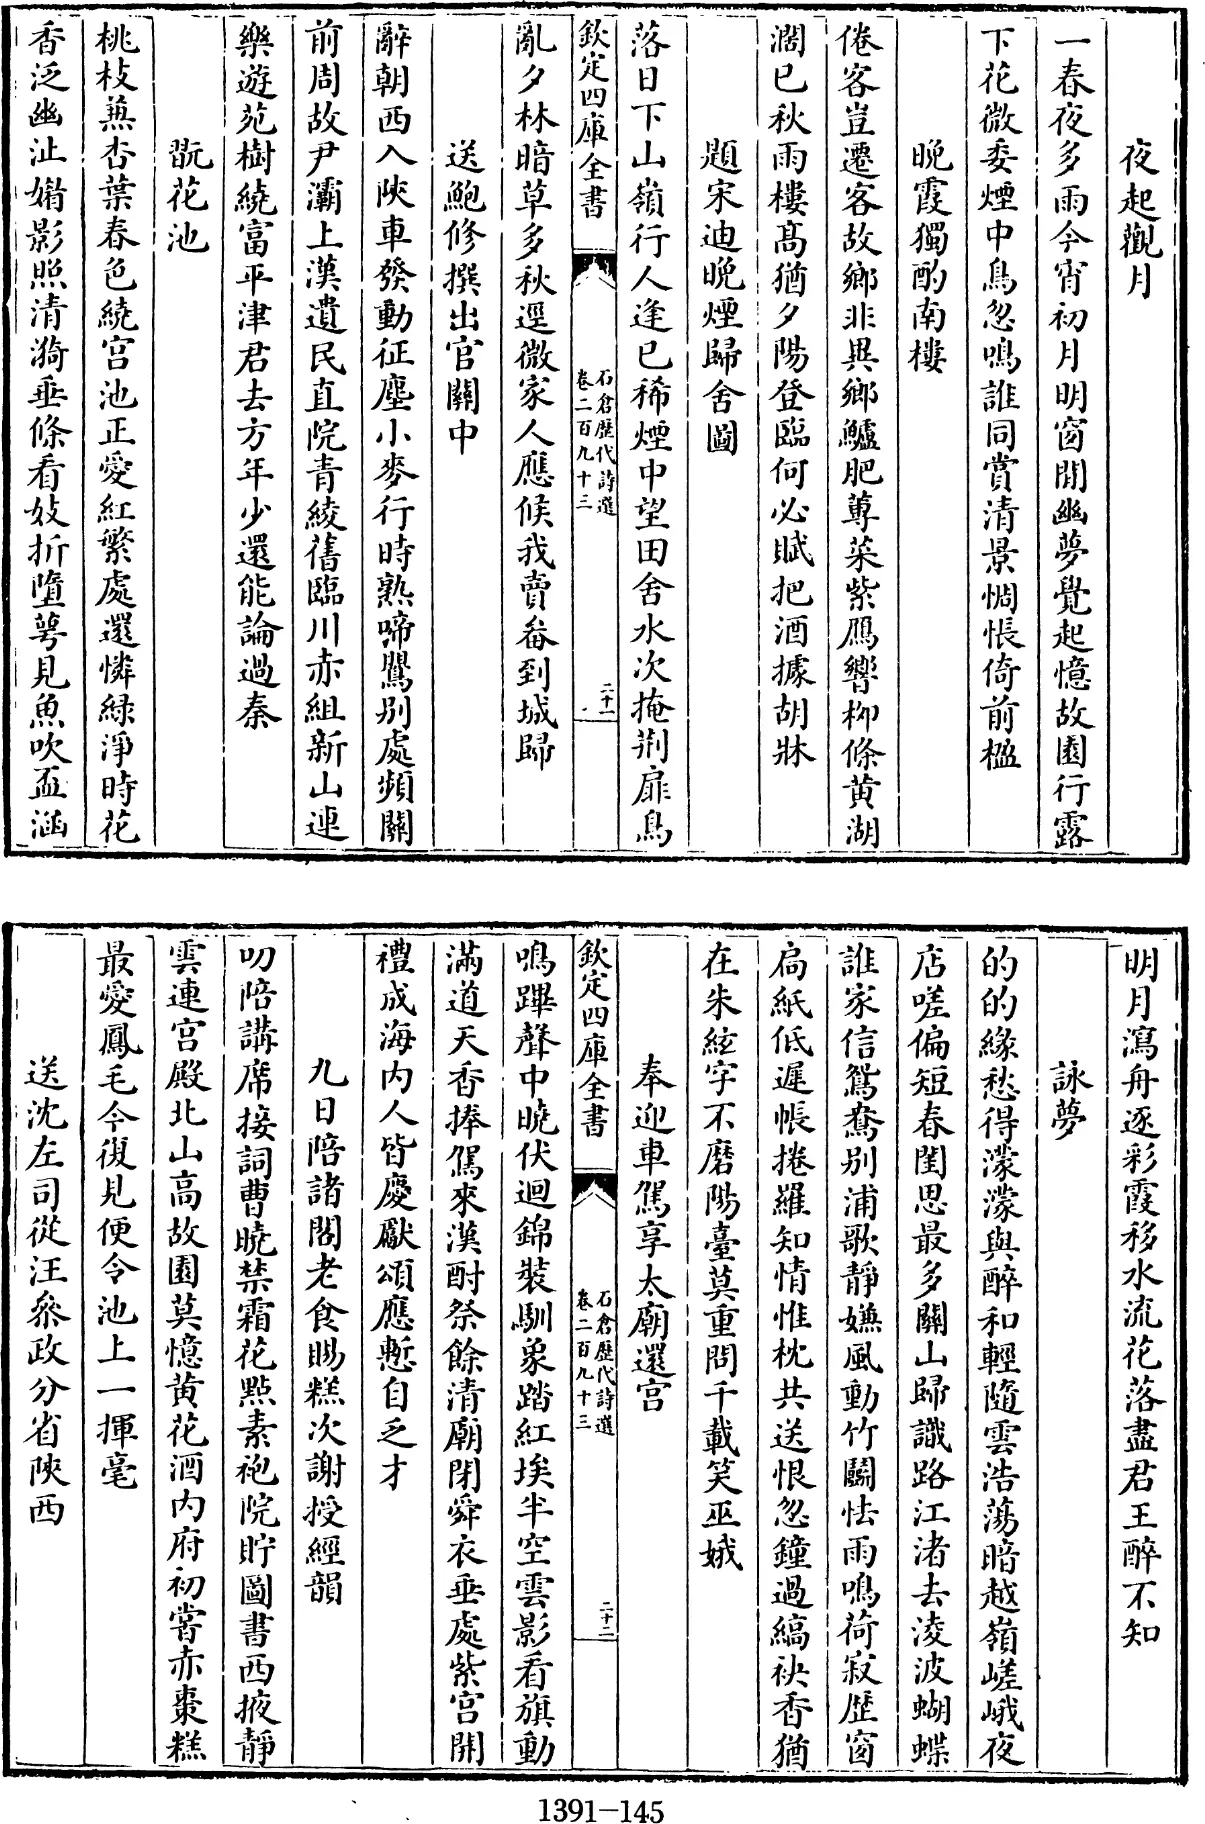 夜起觀月
一春夜多雨今宵初月明窗閒幽夢覺起憶故園行露
下花微委煙中鳥忽鳴誰同賞清景惆悵倚前楹
晚霞獨酌南樓
倦客豈遷客故鄉非異鄉鱸肥蓴菜紫鴈響柳條黃湖
濶已秋雨樓髙猶夕陽登臨何必賦把酒據胡牀
題宋迪晚煙歸舍圖
落日下山嶺行人逢已稀煙中望田舍水次掩荆扉鳥
欽定四庫全書
石倉歷代詩選
卷二百九十三
二十一
亂夕林暗草多秋逕微家人應候我賣畚到城歸
送鮑修撰出官關中
辭朝西入陜車發動征塵小麥行時熟啼鶯別處頻關
前周故尹灞上漢遺民直院青綾舊臨川赤組新山連
樂遊苑樹繞富平津君去方年少還能論過秦
翫花池
桃枝蕪杏葉春色繞宫池正愛紅繁處還憐綠淨時花
香泛幽沚㛠影照清漪垂條看妓折墮萼見魚吹盃涵
明月瀉舟逐彩霞移水流花落盡君王醉不知
詠夢
的的緣愁得濛濛與醉和輕隨雲浩蕩暗越嶺嵯峨夜
店嗟偏短春閨思最多關山歸識路江渚去淩波蝴蝶
誰家信鴛鴦別浦歌靜嫌風動竹鬭怯雨鳴荷寂歴窗
扃紙低遲帳捲羅知情惟枕共送恨忽鐘過縞袂香猶
在朱絃字不磨陽臺莫重問千載笑巫娥
奉迎車駕享太廟還宫
欽定四庫全書
石倉歷代詩選
卷二百九十三
二十二
鳴蹕聲中曉伏迴錦裝馴象踏紅埃半空雲影看旗動
滿道天香捧駕來漢酎祭餘清廟閉舜衣垂處紫宫開
禮成海内人皆慶獻頌應慙自乏才
九日陪諸閣老食賜糕次謝授經韻
叨陪講席接詞曹曉禁霜花點素袍院貯圖書西掖靜
雲連宫殿北山高故園莫憶黃花酒内府初嘗赤棗糕
最愛鳳毛今復見便令池上一揮毫
送沈左司從汪叅政分省陜西
1391-145